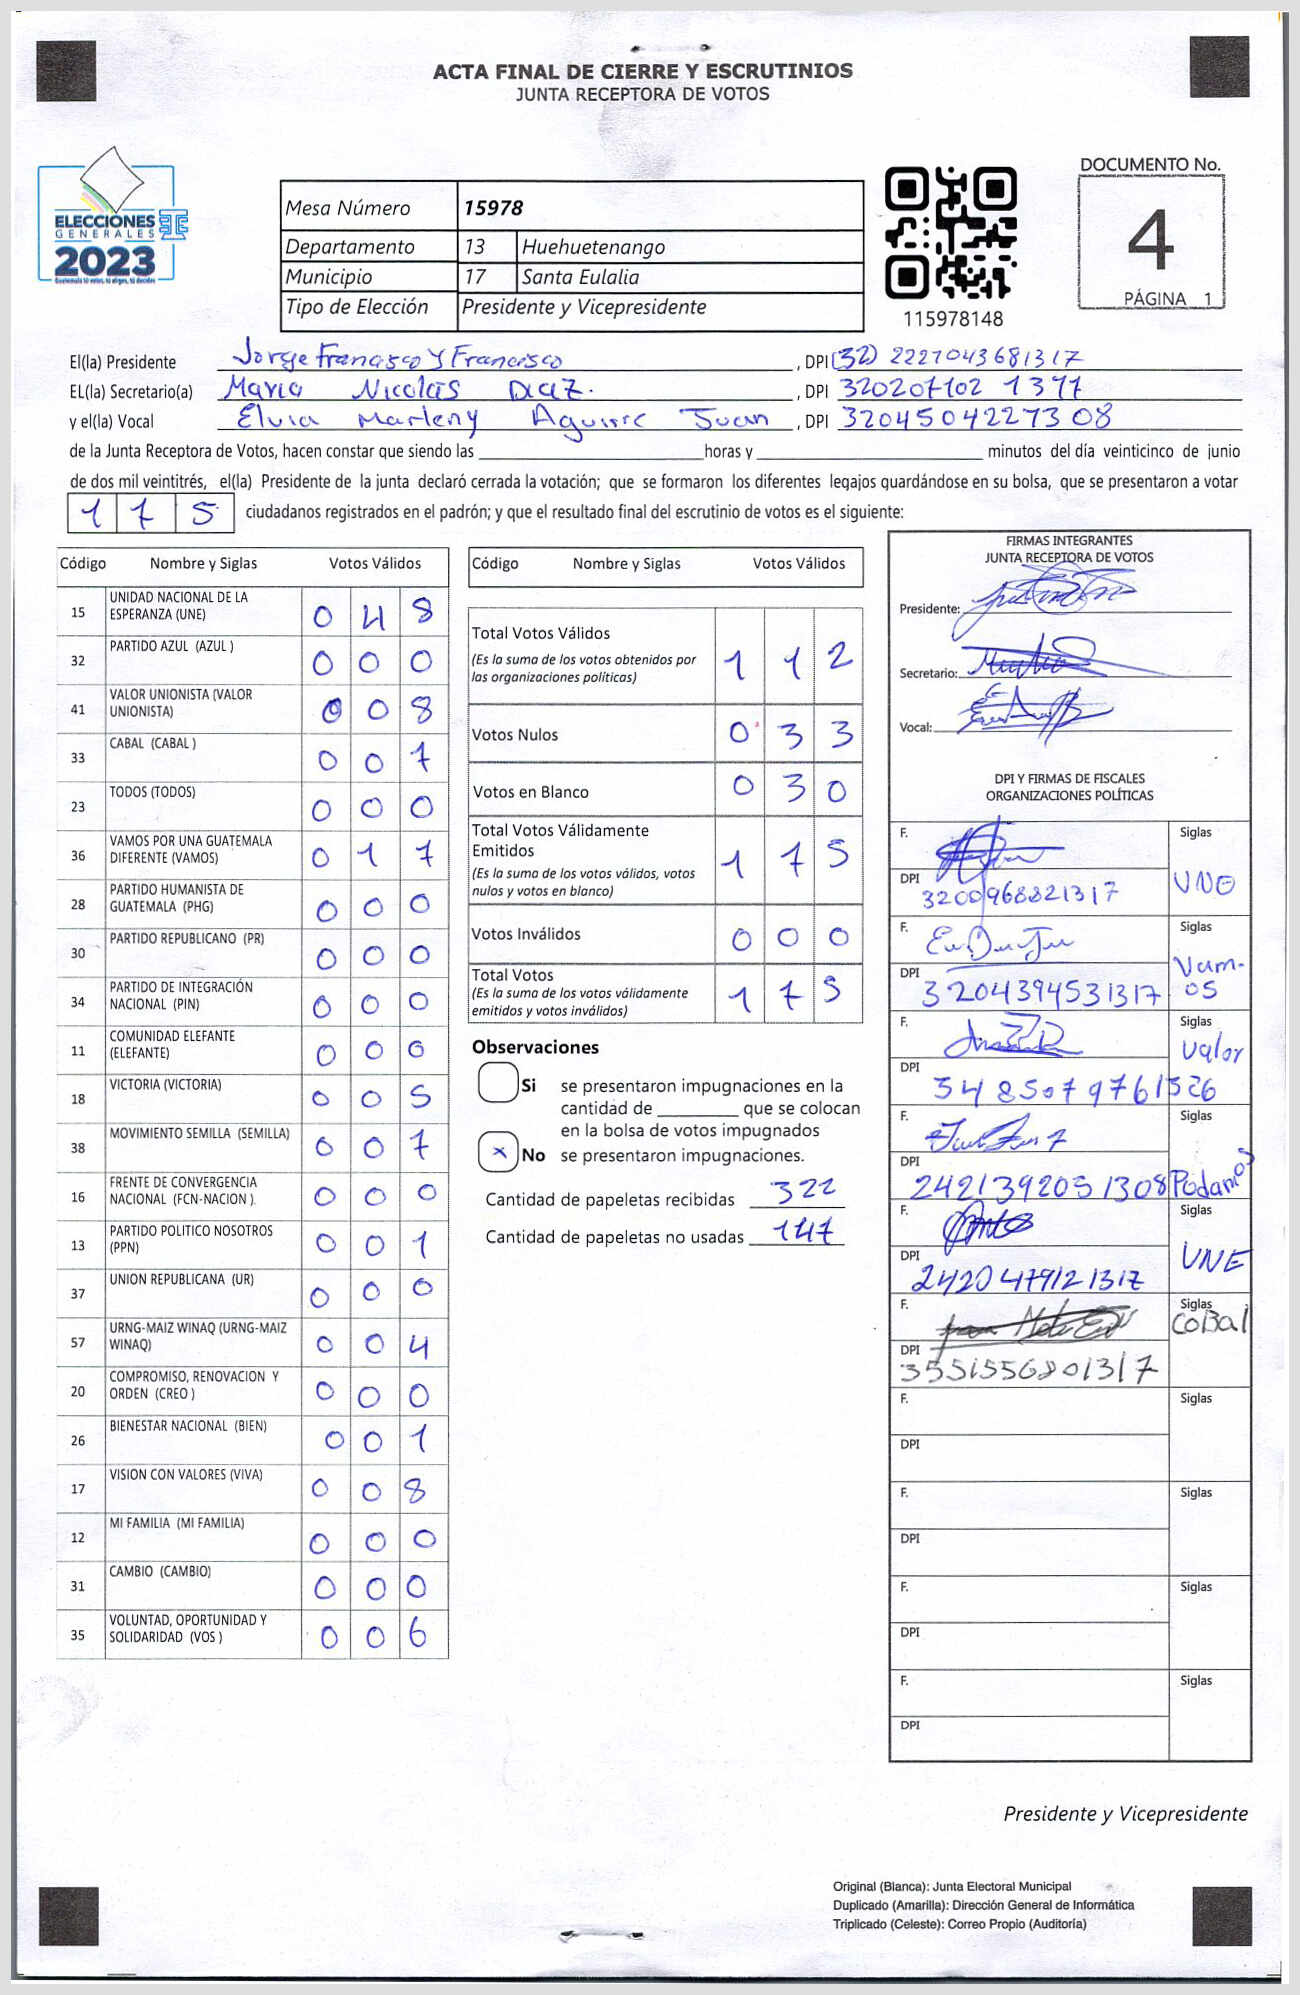 ACTA FINAL DE CIERRE Y ESCRUTINIOS
JUNTA RECEPTORA DE VOTOS
ELECCIONES
GENERALES
2023
Guatemala tú votas, tú eliges, tú decides
Mesa Número 15978
Departamento 13 Huehuetenango
Municipio 17 Santa Eulalia
Tipo de Elección Presidente y Vicepresidente
115978148
DOCUMENTO No.
4
PÁGINA 1
El(la) Presidente Jorge Francisco y Francisco, DPI (32) 2227043681317
EL(la) Secretario(a) Maria Nicolás Diaz., DPI 320207102 1317
y el(la) Vocal Elvia Marleny Aguirre Juan, DPI 3204504227308
de la Junta Receptora de Votos, hacen constar que siendo las ____ horas y ____ minutos del día veinticinco de junio
de dos mil veintitrés, el(la) Presidente de la junta declaró cerrada la votación; que se formaron los diferentes legajos guardándose en su bolsa, que se presentaron a votar
1 7 5 ciudadanos registrados en el padrón; y que el resultado final del escrutinio de votos es el siguiente:
Código Nombre y Siglas Votos Válidos
15 UNIDAD NACIONAL DE LA ESPERANZA (UNE) 0 4 8
32 PARTIDO AZUL (AZUL ) 0 0 0
41 VALOR UNIONISTA (VALOR UNIONISTA) 0 0 8
33 CABAL (CABAL ) 0 0 7
23 TODOS (TODOS) 0 0 0
36 VAMOS POR UNA GUATEMALA DIFERENTE (VAMOS) 0 1 7
28 PARTIDO HUMANISTA DE GUATEMALA (PHG) 0 0 0
30 PARTIDO REPUBLICANO (PR) 0 0 0
34 PARTIDO DE INTEGRACIÓN NACIONAL (PIN) 0 0 0
11 COMUNIDAD ELEFANTE (ELEFANTE) 0 0 0
18 VICTORIA (VICTORIA) 0 0 5
38 MOVIMIENTO SEMILLA (SEMILLA) 0 0 7
16 FRENTE DE CONVERGENCIA NACIONAL (FCN-NACION ). 0 0 0
13 PARTIDO POLITICO NOSOTROS (PPN) 0 0 1
37 UNION REPUBLICANA (UR) 0 0 0
57 URNG-MAIZ WINAQ (URNG-MAIZ WINAQ) 0 0 4
20 COMPROMISO, RENOVACION Y ORDEN (CREO ) 0 0 0
26 BIENESTAR NACIONAL (BIEN) 0 0 1
17 VISION CON VALORES (VIVA) 0 0 8
12 MI FAMILIA (MI FAMILIA) 0 0 0
31 CAMBIO (CAMBIO) 0 0 0
35 VOLUNTAD, OPORTUNIDAD Y SOLIDARIDAD (VOS ) 0 0 6
Código Nombre y Siglas Votos Válidos
Total Votos Válidos 1 1 2
(Es la suma de los votos obtenidos por
las organizaciones políticas)
Votos Nulos 0 3 3
Votos en Blanco 0 3 0
Total Votos Válidamente
Emitidos 1 7 5
(Es la suma de los votos válidos, votos
nulos y votos en blanco)
Votos Inválidos 0 0 0
Total Votos 1 7 5
(Es la suma de los votos válidamente
emitidos y votos inválidos)
Observaciones
Si se presentaron impugnaciones en la
cantidad de ____ que se colocan
en la bolsa de votos impugnados
x No se presentaron impugnaciones.
Cantidad de papeletas recibidas 322
Cantidad de papeletas no usadas 147
FIRMAS INTEGRANTES
JUNTA RECEPTORA DE VOTOS
Presidente:
Secretario:
Vocal:
DPI Y FIRMAS DE FISCALES
ORGANIZACIONES POLÍTICAS
F. Siglas
DPI 3200968821317 UNE
F. Siglas
DPI 3204394531317 Vam-
os
F. Siglas
DPI 3485079761326 Valor
F. Siglas
DPI 2421392051308 Podamos
F. Siglas
DPI 2420479121317 UNE
F. Siglas
DPI 3551556801317 CoBal
F. Siglas
DPI
F. Siglas
DPI
F. Siglas
DPI
F. Siglas
DPI
Presidente y Vicepresidente
Original (Blanca): Junta Electoral Municipal
Duplicado (Amarilla): Dirección General de Informática
Triplicado (Celeste): Correo Propio (Auditoría)